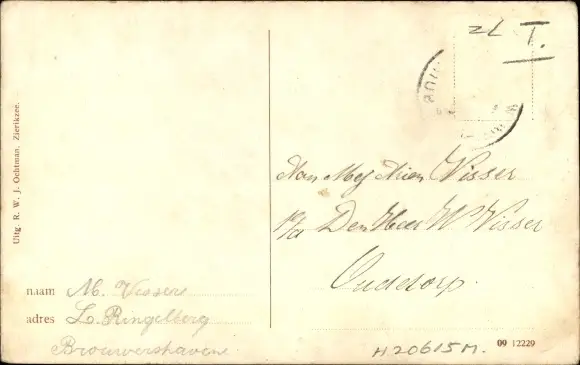 Uitg. R. W. J. Ochtman, Zierikzee.
ZL T.
Aan Mej Arien Visser
p/a Den Heer W Visser
Ouddorp.
naam M. Vissers
adres L. Ringelberg
Brouwershaven
H20615M.
09 12229